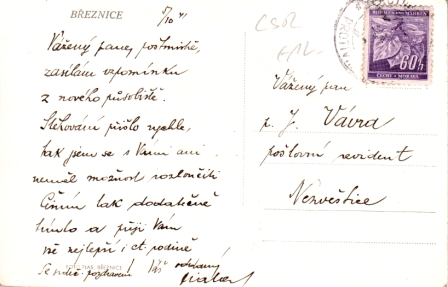 BŘEZNICE
5/10 41
Vážený pane poštmistře,
zasílám vzpomínku
z nového působiště.
Stěhování přišlo rychle,
tak jsem se s Vámi ani
neměl možnost rozloučiti
Činím tak dodatečně
tímto a přeji Vám
vše nejlepší i ct. rodině
Se srdeč. pozdravem Váš oddaný
FOTO FIAS, BŘEZNICE
ČSOL
BÖHMEN UND MÄHREN
60 h
ČECHY - MORAVA
Vážený pan
p. J. Vávra
poštovní revident
Nezvěstice